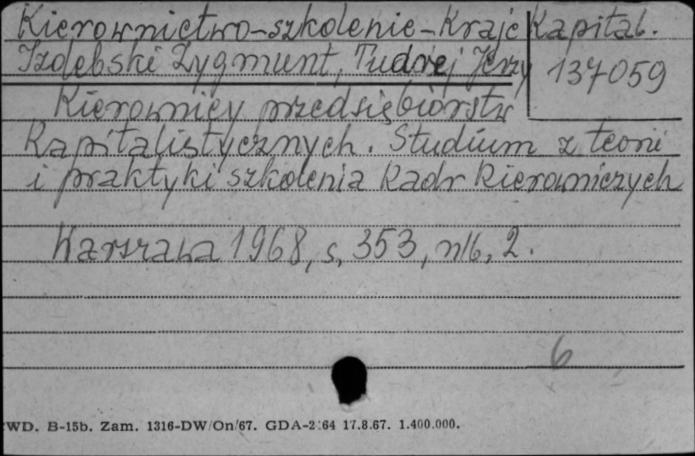 Kierownictwo-szkolenie-Kraje Kapital.
Izdebski Zygmunt, Tudrej Jerzy
137059
Kierownicy przedsiębiorstw
Kapitalistycznych. Studium z teorii
i praktyki szkolenia kadr kierowniczych
Warszawa 1968, s. 353, nlb. 2.
6
WD. B-15b. Zam. 1316-DW/On/67. GDA-2:64 17.8.67. 1.400.000.